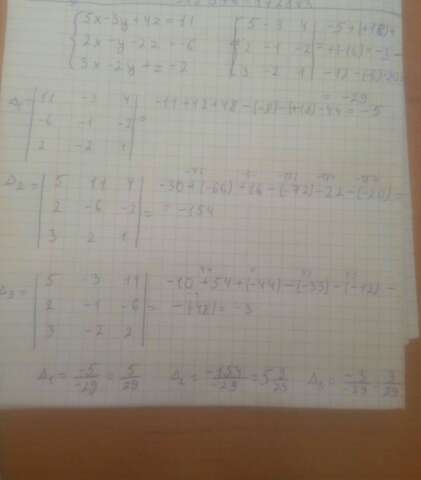 5x-3y+4z=11
2x-y-2z=-6
3x-2y+z=2
5 -3 4
2 -1 -2
3 -2 1
= -29
Δ₁= 11 -3 4
-6 -1 -2 =
2 -2 1
-11+12+48-(-8)-(+18)-44=-5
Δ₂= 5 11 4
2 -6 -2 =
3 2 1
-30+(-66)+16-(-72)-22-(-20)=
= -154
Δ₃= 5 -3 11
2 -1 -6 =
3 -2 2
-10+54+(-44)-(-33)-(-12)-
-(48)=-3
Δ₁ = -5/-29 = 5/29 Δ₂ = -154/-29 = 5 9/29 Δ₃ = -3/-29 3/29